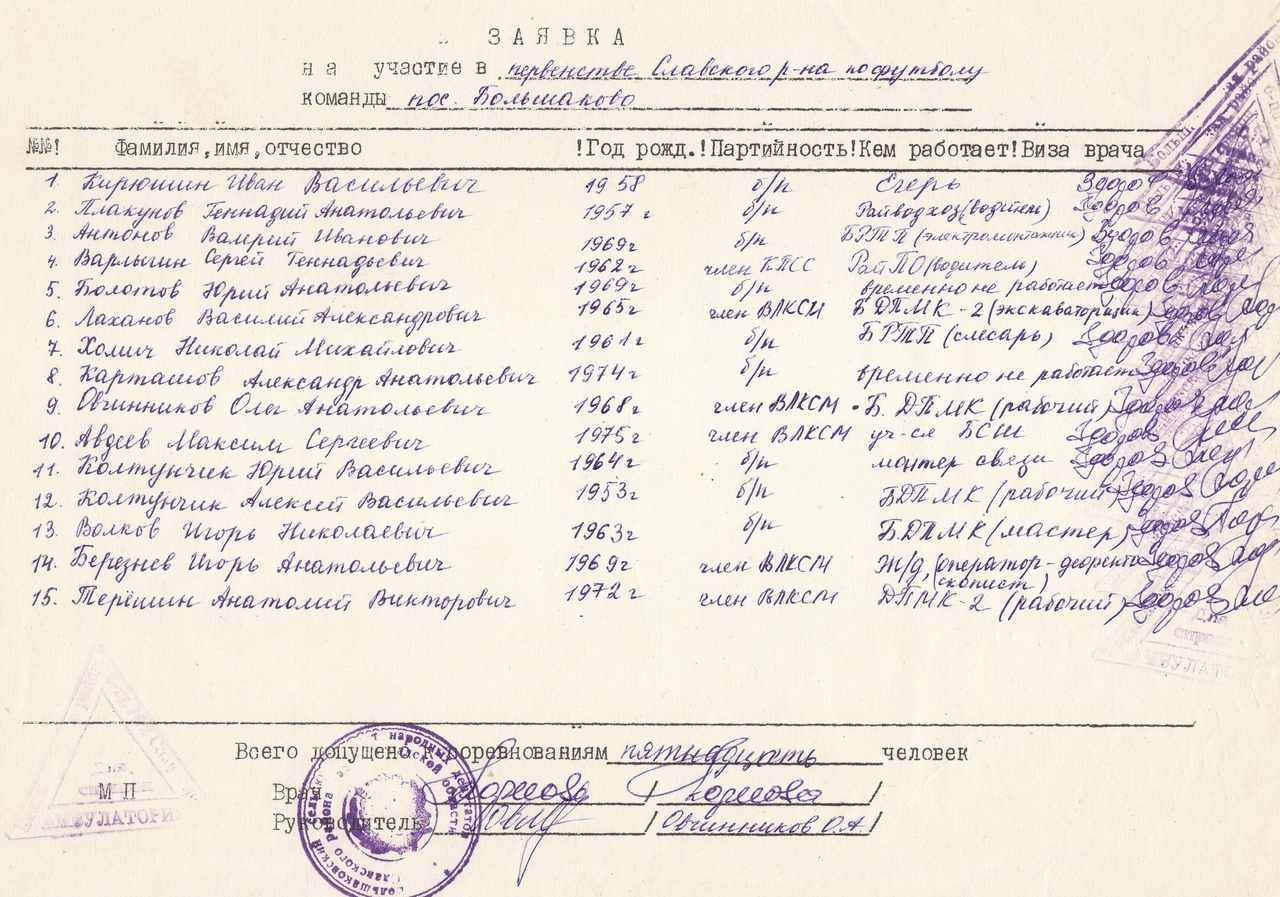 ЗАЯВКА
на участие в первенстве Славского р-на по футболу
команды пос. Большаково
№№! Фамилия, имя, отчество !Год рожд.!Партийность!Кем работает!Виза врача
1. Кирюшин Иван Васильевич 1958 б/п Егерь Здоров
2. Плакунов Геннадий Анатольевич 1957 г б/п Райводхоз (водитель) Здоров
3. Антонов Валерий Иванович 1969 г б/п БРТП (электромонтажник) Здоров
4. Варлыгин Сергей Геннадьевич 1962 г член КПСС РайПО (водитель) Здоров
5. Болотов Юрий Анатольевич 1969 г б/п временно не работает Здоров
6. Лаханов Василий Александрович 1965 г член ВЛКСМ БДПМК-2 (экскаваторщик) Здоров
7. Холич Николай Михайлович 1961 г б/п БРТП (слесарь) Здоров
8. Карташов Александр Анатольевич 1974 г б/п временно не работает Здоров
9. Овчинников Олег Анатольевич 1968 г член ВЛКСМ Б. ДПМК (рабочий) Здоров
10. Авдеев Максим Сергеевич 1975 г член ВЛКСМ уч-ся БСШ Здоров
11. Колтунчик Юрий Васильевич 1964 г б/п монтер связи Здоров
12. Колтунчик Алексей Васильевич 1953 г б/п БДПМК (рабочий) Здоров
13. Волков Игорь Николаевич 1963 г б/п БДПМК (мастер) Здоров
14. Березнев Игорь Анатольевич 1969 г член ВЛКСМ ж/д, (оператор-дефектоскопист) Здоров
15. Терёшин Анатолий Викторович 1972 г член ВЛКСМ ДПМК-2 (рабочий) Здоров
Всего допущено к соревнованиям пятнадцать человек
МП Врач
Руководитель / Овчинников О.А. /
народных депутатов
Славского района
АМБУЛАТОРИ